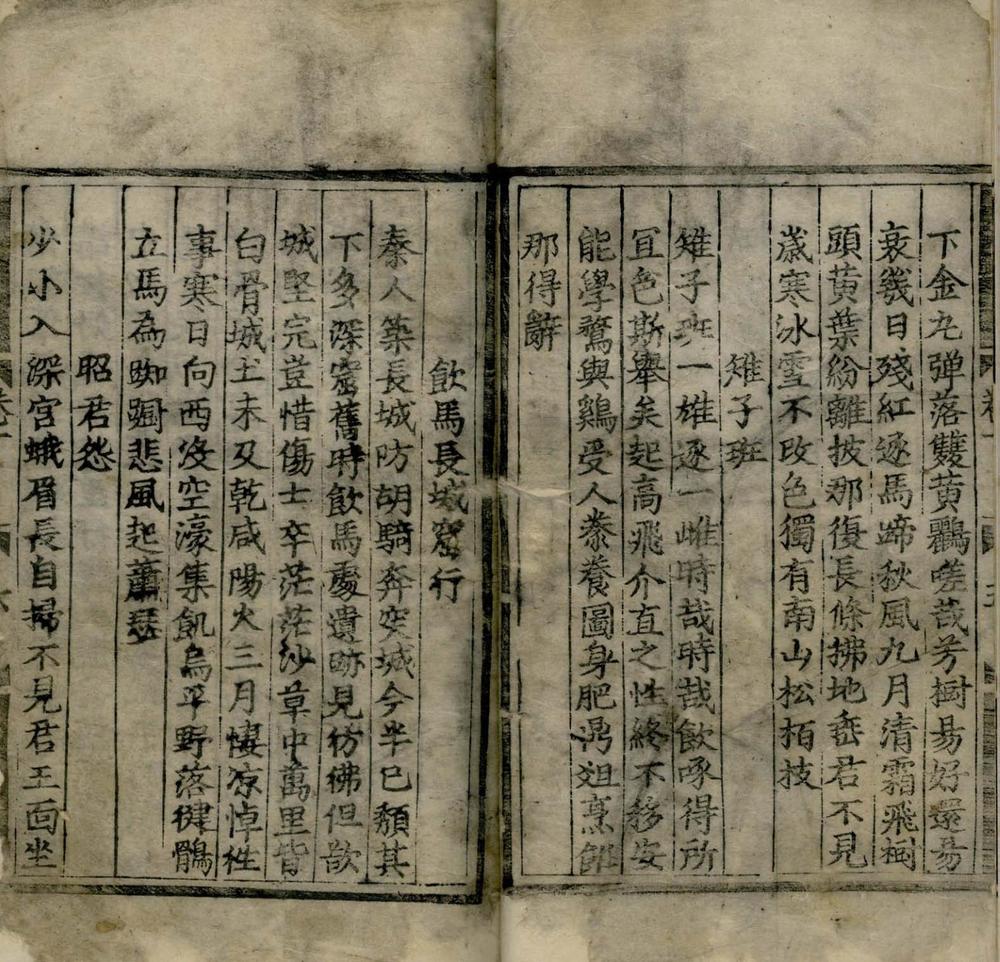 下金丸弹落雙黄鸝嗟哉芳樹易好還易
衰幾日殘紅逐馬蹄秋風九月清霜飛樹
頭黄葉紛離披那復長條拂地垂君不見
歲寒冰雪不改色獨有南山松栢技
雉子班
雉子班一雄逐一雌時哉時哉飮啄得所
冝色斯舉矣起高飛介直之性終不移安
能學鶩與鷄受人豢養圖身肥湯爼烹飪
那得辭
飮馬長城窟行
秦人築長城防胡騎奔突城今半已頽其
下多深窟舊時飮馬處遺跡見彷彿但歆
城堅完豈惜傷士卒茫茫沙草中萬里皆
白骨城土未及乾咸陽火三月悽凉悼徃
事寒日向西沒空濠集飢烏平野落健鶻
立馬為踟躕悲風起蕭瑟
昭君怨
少小入深宮蛾眉長自掃不見君王面坐